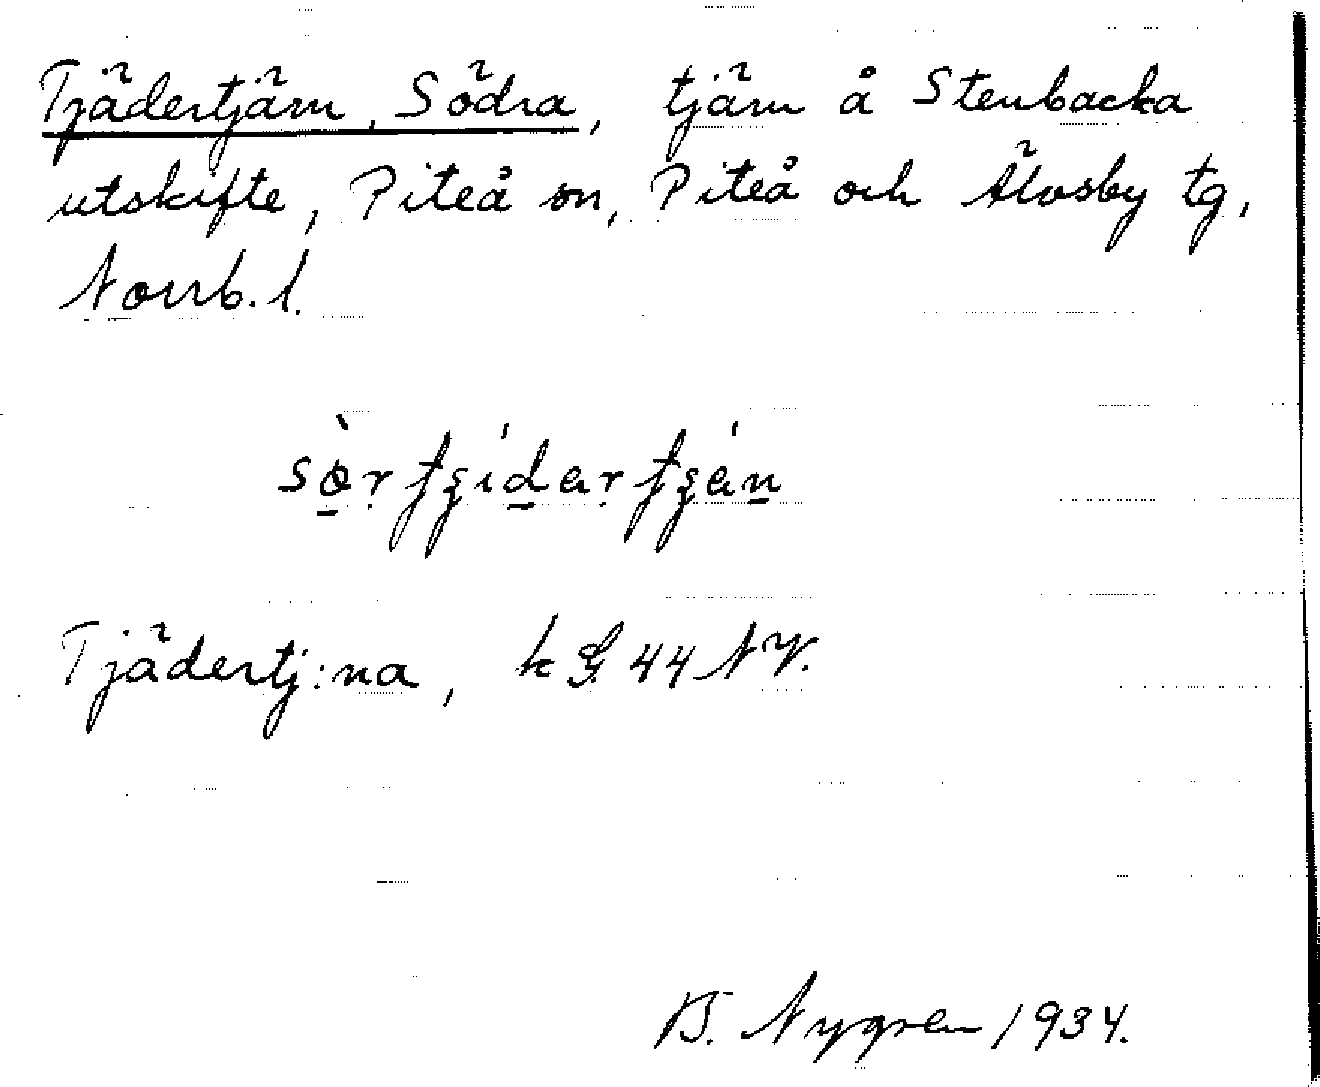 Tjädertjärn, Södra, tjärn å Stenbacka
utskifte, Piteå sn, Piteå och Älvsby tg,
Norrb. l.
Tjädertj:na, k 44 NV.
B. Nygren 1934.